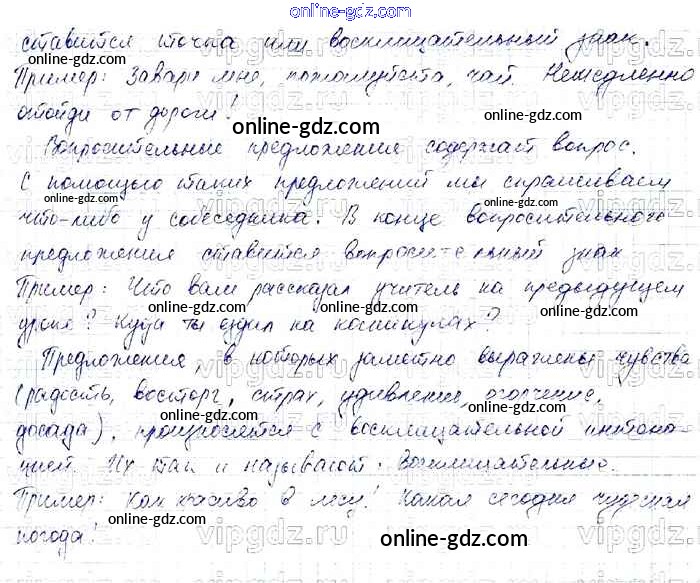 online-gdz.com
ставится точка или восклицательный знак.
Пример: Завари мне, пожалуйста, чай. Немедленно
отойди от дороги!
online-gdz.com
Вопросительные предложения содержат вопрос.
С помощью таких предложений мы спрашиваем
что-либо у собеседника. В конце вопросительного
online-gdz.com
предложения ставится вопросительный знак
Пример: Что вам рассказал учитель на предыдущем
уроке? Куда ты ездил на каникулах?
online-gdz.com
online-gdz.com
Предложения, в которых заметно выражены чувства
(радость, восторг, страх, удивление, огорчение,
online-gdz.com
online-gdz.com
досада), произносятся с восклицательной интона-
цией. Их так и называют: восклицательные.
online-gdz.com
Пример: Как красиво в лесу! Какая сегодня чудесная
погода!
online-gdz.com
online-gdz.com
vipgdz.com